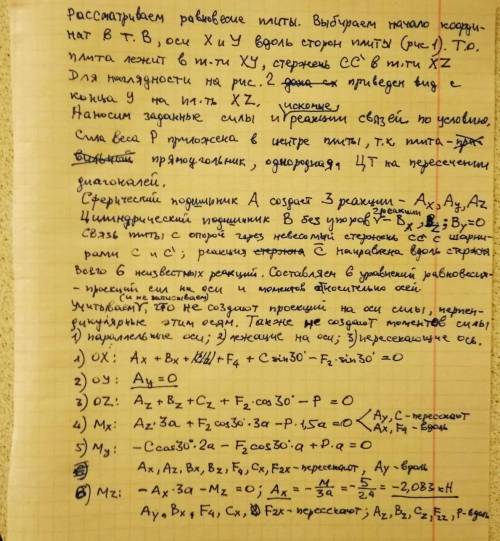 Рассматриваем равновесие плиты. Выбираем начало коорди-
нат В т. B, оси X и Y вдоль сторон плиты (рис.1). Т.о.
плита лежит в пл-ти XY, стержень CC' в пл-ти XZ
Для наглядности на рис. 2 приведен вид с
конца Y на пл-ть XZ.
Наносим заданные силы и искомые реакции связей по условию.
Сила веса P приложена в центре плиты, т.к. плита-
прямоугольник, однородная, ЦТ на пересечении
диагоналей.
Сферический подшипник А создает 3 реакции - Ax, Ay, Az
Цилиндрический подшипник B без упоров Y - 2 реакции Bx, Bz; By=0
Связь плиты с опорой через невесомый стержень CC' с шарни-
рами C и C'; реакция C̄ направлена вдоль стержня
Всего 6 неизвестных реакций. Составляем 6 уравнений равновесия-
- проекций сил на оси и моментов относительно осей
Учитываем (и не записываем), что не создают проекций на оси силы, перпен-
дикулярные этим осям. Также не создают моментов силы
1) параллельные оси; 2) лежащие на оси; 3) пересекающие ось.
1) OX: Ax + Bx + F4 + C sin30° - F2·sin30° = 0
2) OY: Ay = 0
3) OZ: Az + Bz + Cz + F2·cos30° - P = 0
4) Mx: Az·3a + F2 cos30°·3a - P·1,5a = 0 < Ay, C - пересекают
Ax, F4 - вдоль
5) My: -C cos30°·2a - F2 cos30°·a + P·a = 0
Ax, Az, Bx, Bz, F4, Cx, F2x - пересекают, Ay - вдоль
6) Mz: -Ax·3a - Mz = 0; Ax = -M/3a = -5/2,4 = -2,083 кН
Ay, Bx, F4, Cx, F2x - пересекают; Az, Bz, Cz, F2z, P - вдоль